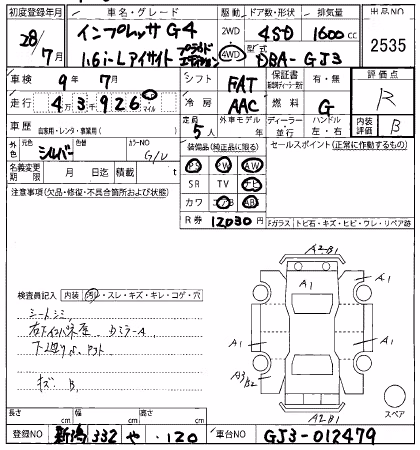 初度登録年月 車名・グレード 駆動 ドア数・形状 排気量 出品NO
28/7月 インプレッサ G4 2WD 4SD 1600cc 2535
1.6i-L アイサイト 4WD 型式 DBA-GJ3
車検 9年 7月 シフト FAT 保証書 有・無 評価点
走行 43千926 km マイル 冷房 AAC 燃料 G R
車歴 自家用・レンタ・事業用( ) 定員 5人 外車モデル 年 ディーラー 並行 ハンドル 左・右 内装評価 B
外色 元色 シルバー 色替 カラーNO G1U 装備品(純正品に限る) セールスポイント(正常に作動するもの)
名義変更期限 月 日迄 積載 t
PS PW AW
SR TV ナビ
カワ エアB ABS
注意事項(欠品・修復・不具合箇所および状態)
R券 12030円
Fガラス トビ石・キズ・ヒビ・ウレ・リペア跡
A2-B1
A1
A1
検査員記入 内装 汚れ・スレ・キズ・キレ・コゲ・穴
シートシミ
A1 A1
キズ B,
スペア
A2-B1
長さ cm 幅 cm 高さ cm
登録NO 新潟 332 や ・120 車台NO GJ3-012479